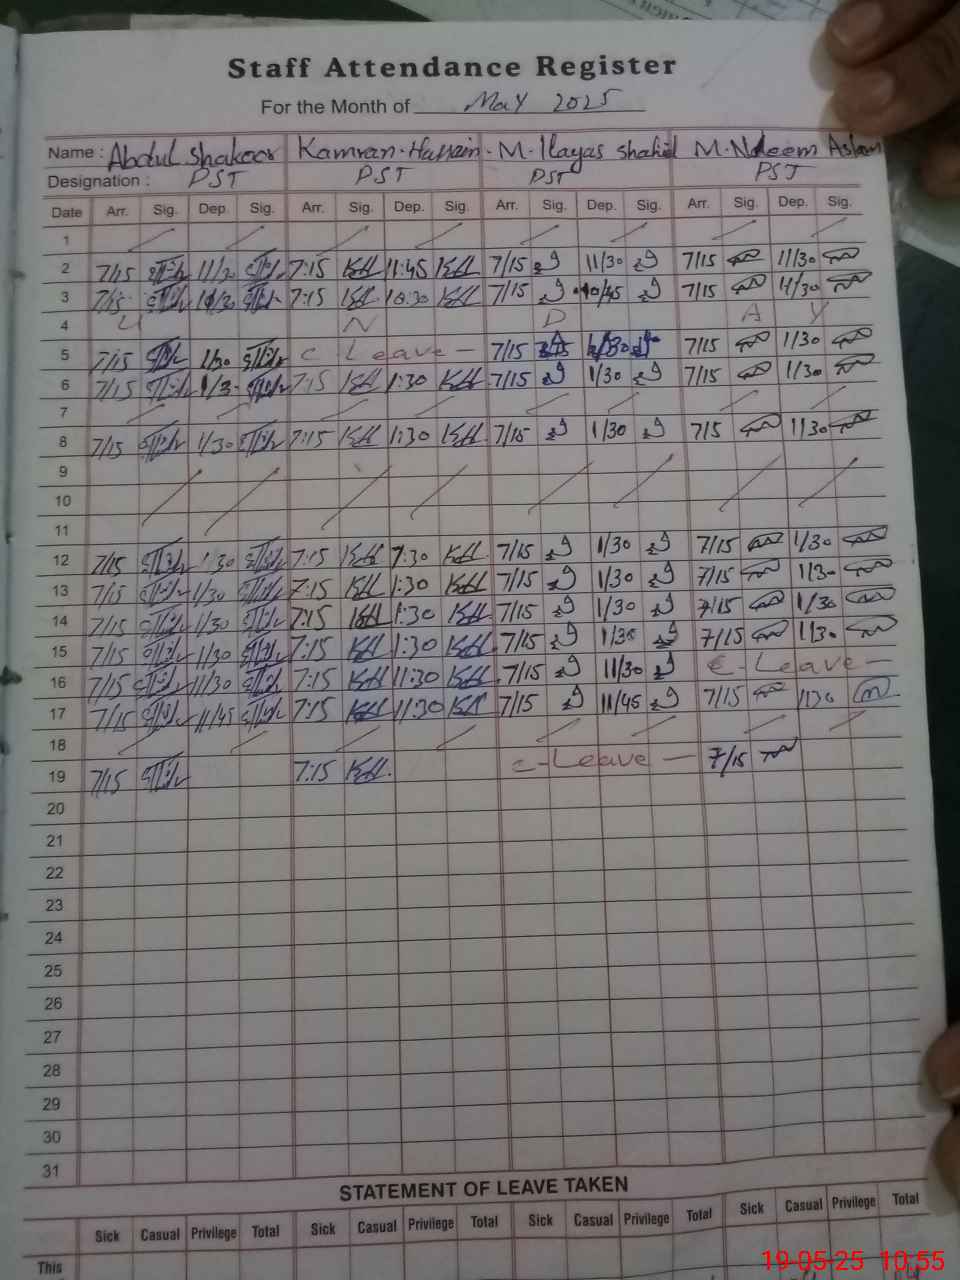 Staff Attendance Register
For the Month of May 2025
Name : Abdul Shakoor Kamran Hussain M. Ilayas Shahid M. Nadeem Aslam
Designation : PST PST PST PST
Date Arr. Sig. Dep. Sig. Arr. Sig. Dep. Sig. Arr. Sig. Dep. Sig. Arr. Sig. Dep. Sig.
1
2 7/15 7:15 11:45 7/15 11/30 7/15 11/30
3 7/15 7:15 10:30 7/15 10/45 7/15 11/30
4 N D A Y
5 7/15 1/30 C Leave - 7/15 7/15 1/30
6 7/15 7:15 1:30 7/15 1/30 7/15 1/30
7
8 7/15 1/30 7:15 1:30 7/15 1/30 7/15 1/30
9
10
11
12 7/15 1/30 7:15 1:30 7/15 1/30 7/15 1/30
13 7/15 1/30 7:15 1:30 7/15 1/30 7/15 1/30
14 7/15 1/30 7:15 1:30 7/15 1/30 7/15 1/30
15 7/15 11/30 7:15 1:30 7/15 1/30 7/15 1/30
16 7/15 11/30 7:15 11:30 7/15 11/30 C-Leave-
17 7/15 11/45 7:15 11:30 7/15 11/45 7/15
18
19 7/15 7:15 C-Leave - 7/15
20
21
22
23
24
25
26
27
28
29
30
31
STATEMENT OF LEAVE TAKEN
Sick Casual Privilege Total Sick Casual Privilege Total Sick Casual Privilege Total Sick Casual Privilege Total
This
19-05-25 10:55